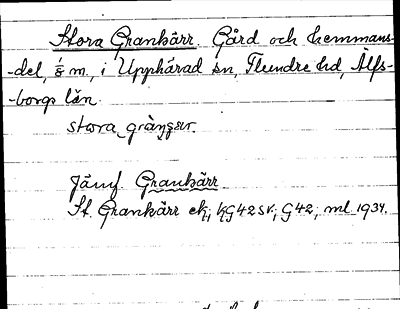 Stora Grankärr. Gård och hemmans-
-del, 1/8 m., i Upphärad sn, Flundre hd, Älfs-
-borgs län.
stora
Jämf. Grankärr
St. Grankärr ek; G42; ml 1934.